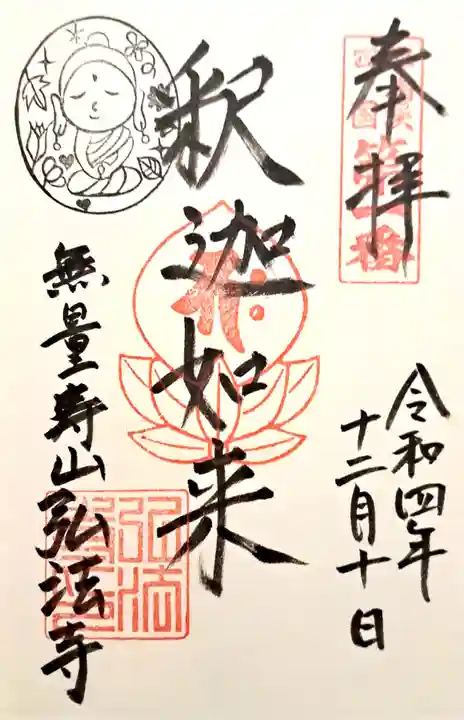 奉拝
第一番
令和四年
十二月十日
釈迦如来
無量寿山弘法寺